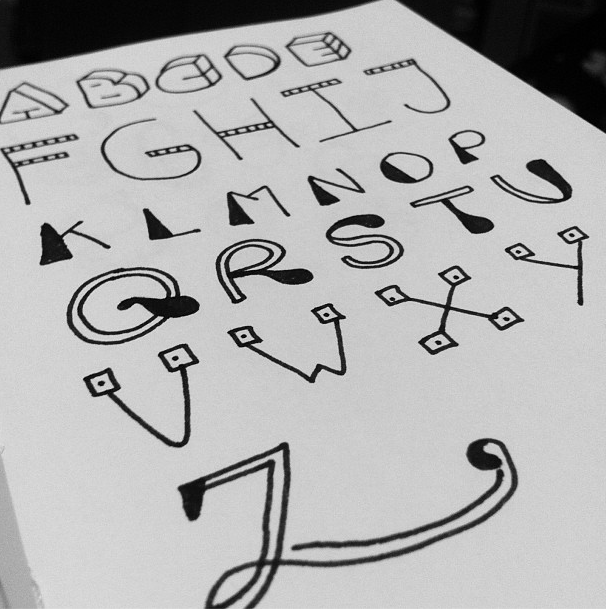 ABCDE
FGHIJ
KLMNOP
QRSTU
VWXY
Z